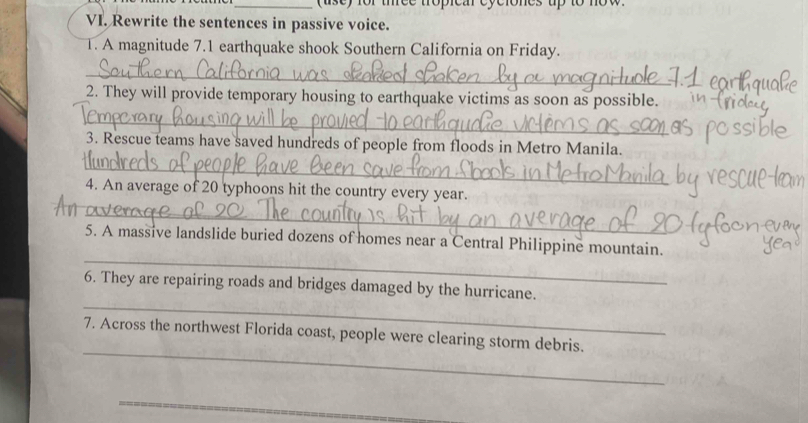 (use) for three tropical cyclones up to now.
VI. Rewrite the sentences in passive voice.
1. A magnitude 7.1 earthquake shook Southern California on Friday.
Southern California was shaken by a magnitude 7.1 earthquake
in friday
2. They will provide temporary housing to earthquake victims as soon as possible.
Temperary housing will be provied to earthquake victems as soon as possible
3. Rescue teams have saved hundreds of people from floods in Metro Manila.
Hundreds of people have been save from floods in Metro Manila by rescue team
4. An average of 20 typhoons hit the country every year.
An average of 20 The country is hit by an average of 20 tyfoon every
year
5. A massive landslide buried dozens of homes near a Central Philippine mountain.
6. They are repairing roads and bridges damaged by the hurricane.
7. Across the northwest Florida coast, people were clearing storm debris.